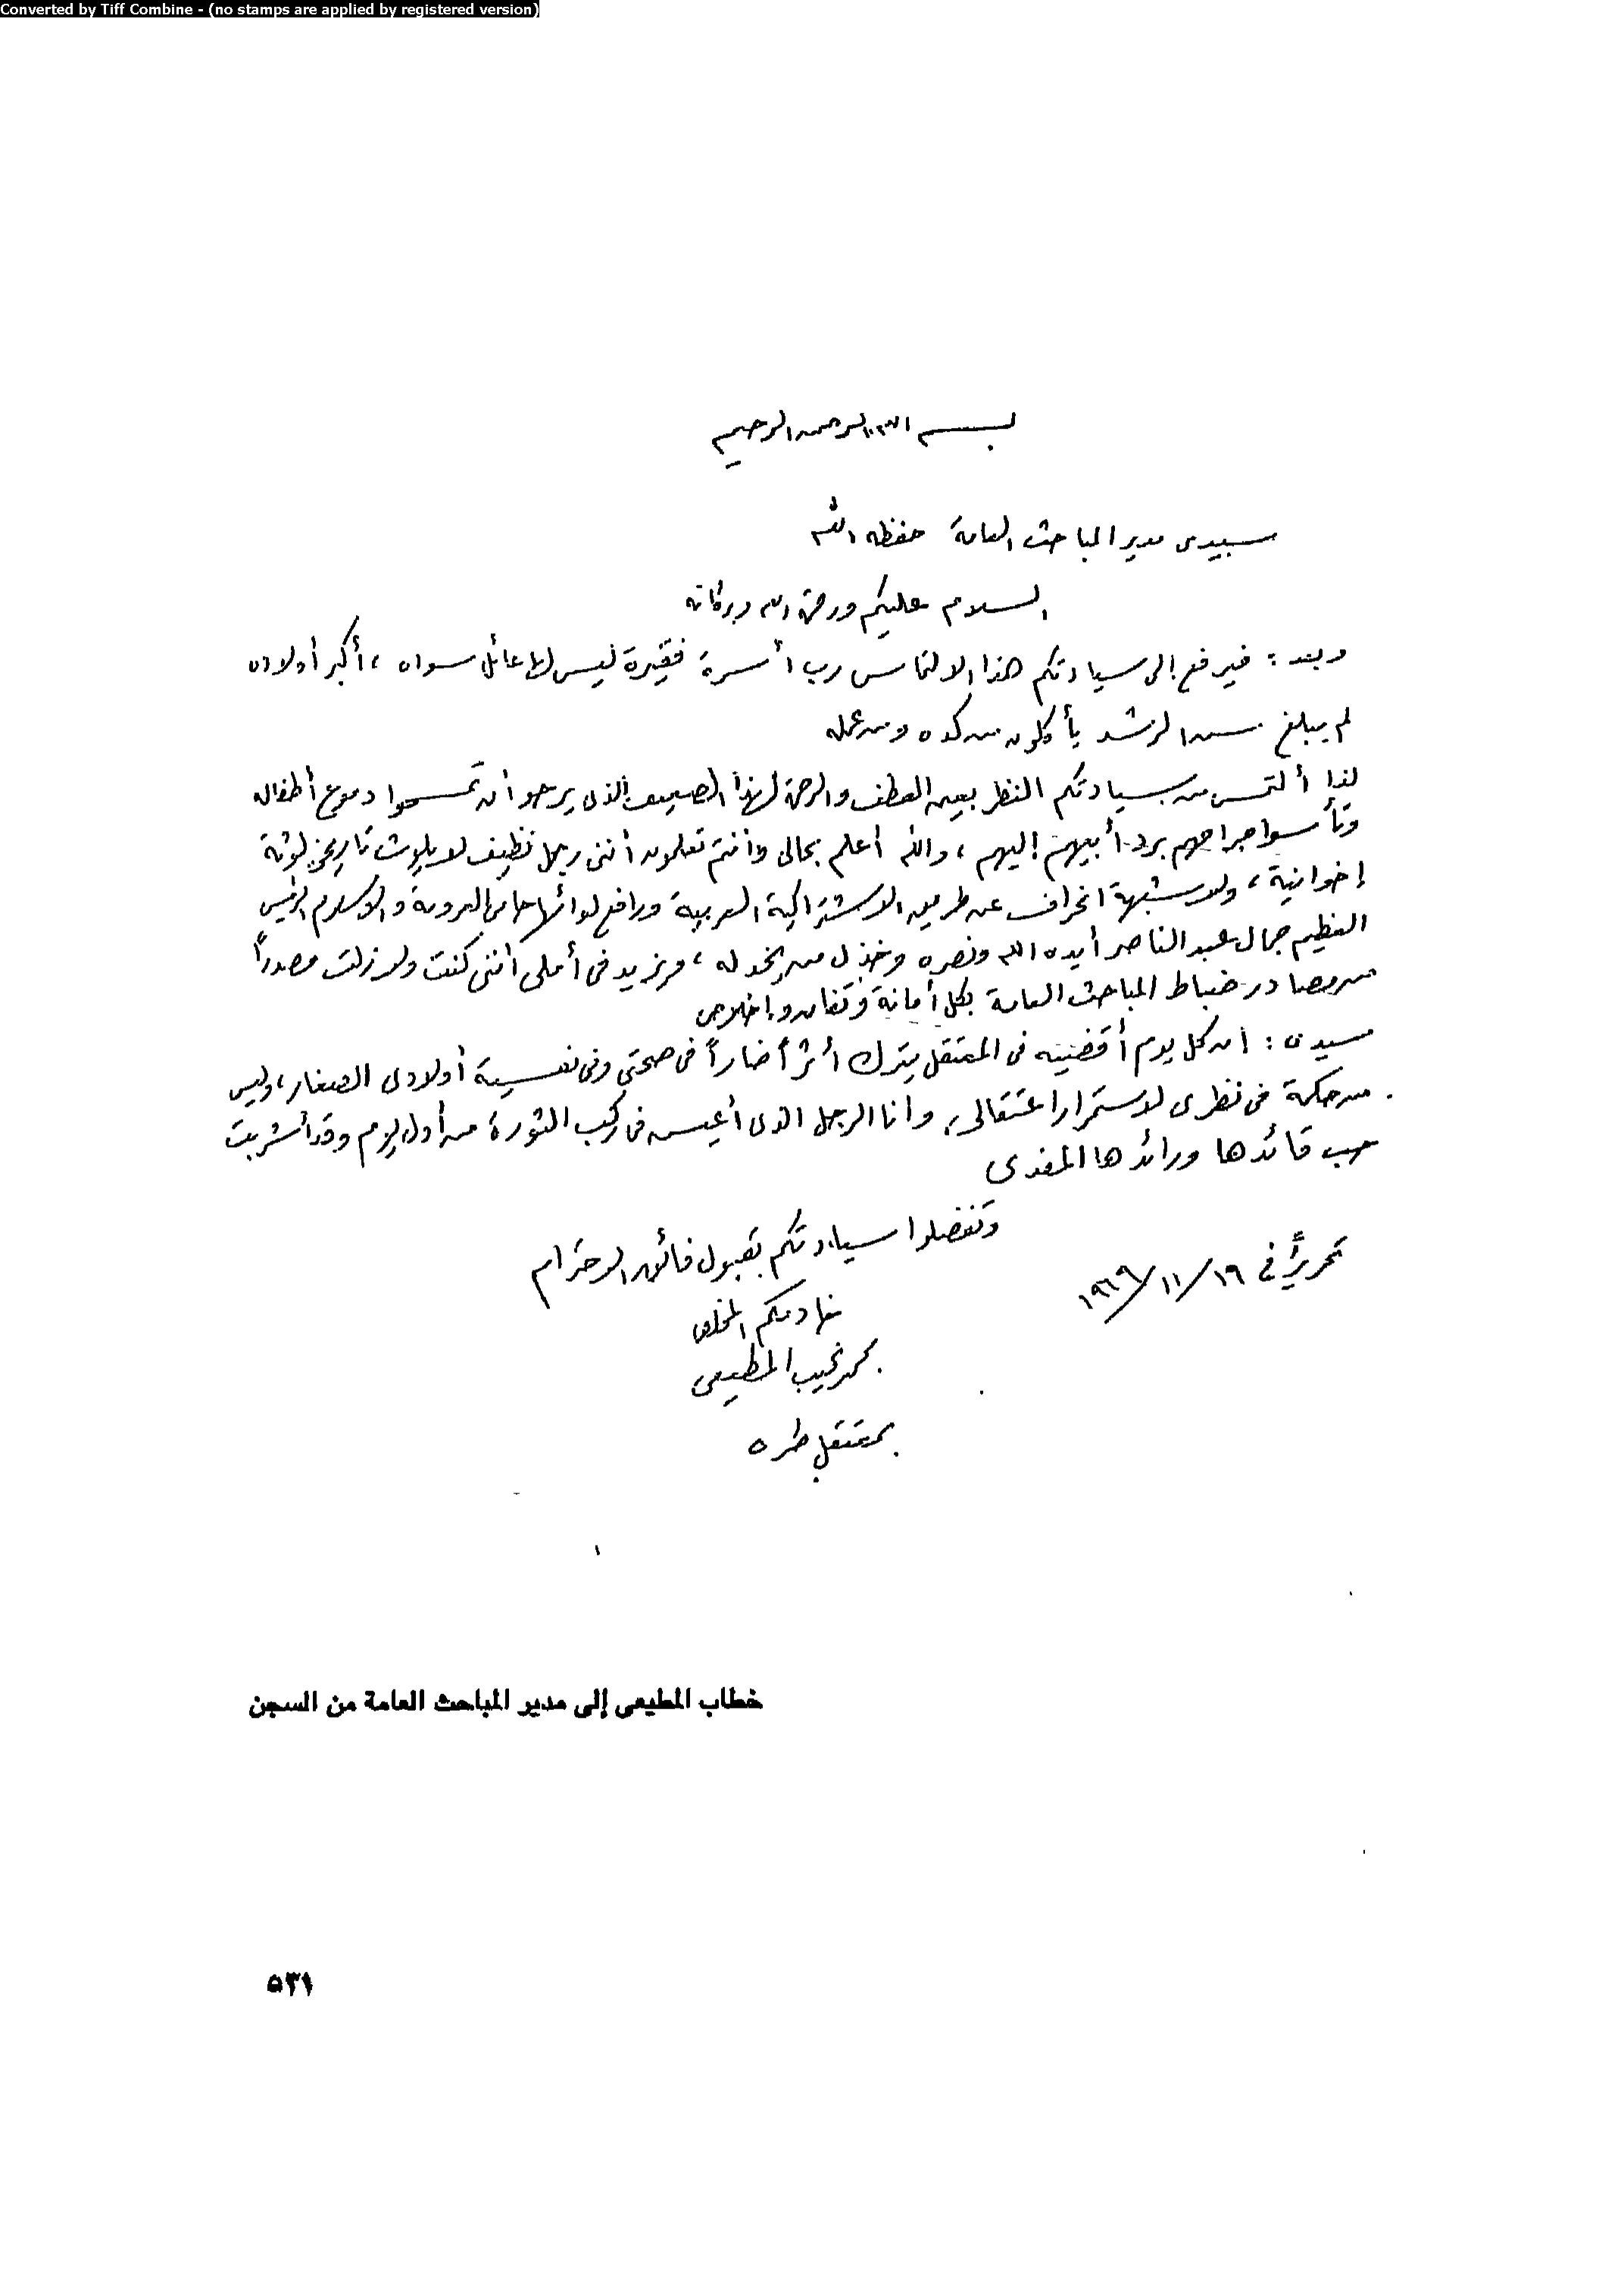 Converted by Tiff Combine - (no stamps are applied by registered version)
بسم الله الرحمن الرحيم
سيدى مدير المباحث العامة حفظه الله
السلام عليكم ورحمة الله وبركاته
وبعد : فيرفع إلى سيادتكم هذا الالتماس رب أسرة فقيرة ليس لها عائل سواه ، أكبر أولاده
لم يبلغ سن الرشد يأكلون من كده ومن عمله
لذا ألتمس من سيادتكم النظر بعين العطف والرحمة لهذا الضعيف الذى يرجو أن تمسحوا دموع أطفاله
وتأسوا جراحهم برد أبيهم إليهم ، والله أعلم بحالى وأنتم تعلمون أننى رجل نظيف لا يلوث تاريخى لوثة
إخوانية ، ولا شبهة انحراف عن طريق الاشتراكية العربية ورافع لوائها حامى العروبة والإسلام الرئيس
العظيم جمال عبد الناصر أيده الله ونصره وخذل من يخذله ، ويزيد فى أملى أننى كنت ولا زلت مصدراً
من مصادر ضباط المباحث العامة بكل أمانة وتفان وإخلاص
سيدى : إن كل يوم أقضيه فى المعتقل يترك أثراً ضاراً فى صحتى وفى نفسية أولادى الصغار ، وليس
من حكمة فى نظرى لاستمرار اعتقالى ، وأنا الرجل الذى أعيش فى ركب الثورة من أول يوم وقد أشربت
حب قائدها ورائدها المفدى
وتفضلوا سيادتكم بقبول فائق الاحترام
تحريراً فى ١٦ / ١١ / ١٩٦٦
خادمكم المخلص
محمد نجيب المطيعى
بمعتقل طره
خطاب المطيعى إلى مدير المباحث العامة من السجن
٥٣١